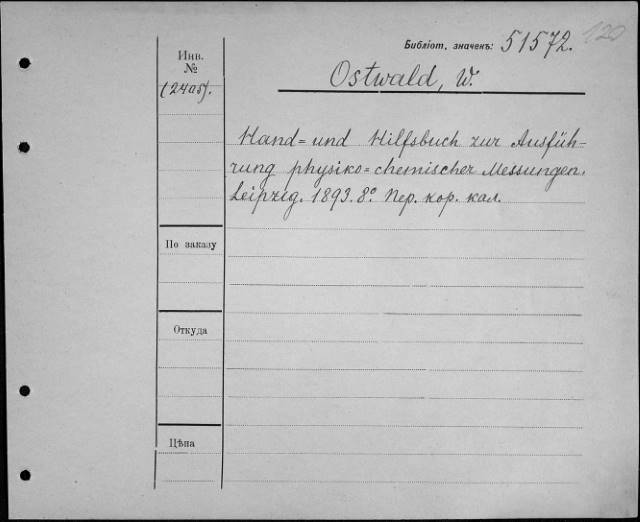 120
Библіот. значекъ: 51572.
Инв.
№
(2405).
Ostwald, W.
Hand- und Hilfsbuch zur Ausfüh-
rung physiko-chemischer Messungen.
Leipzig. 1893. 8º. Пер. кор. кал.
По заказу
Откуда
Цѣна